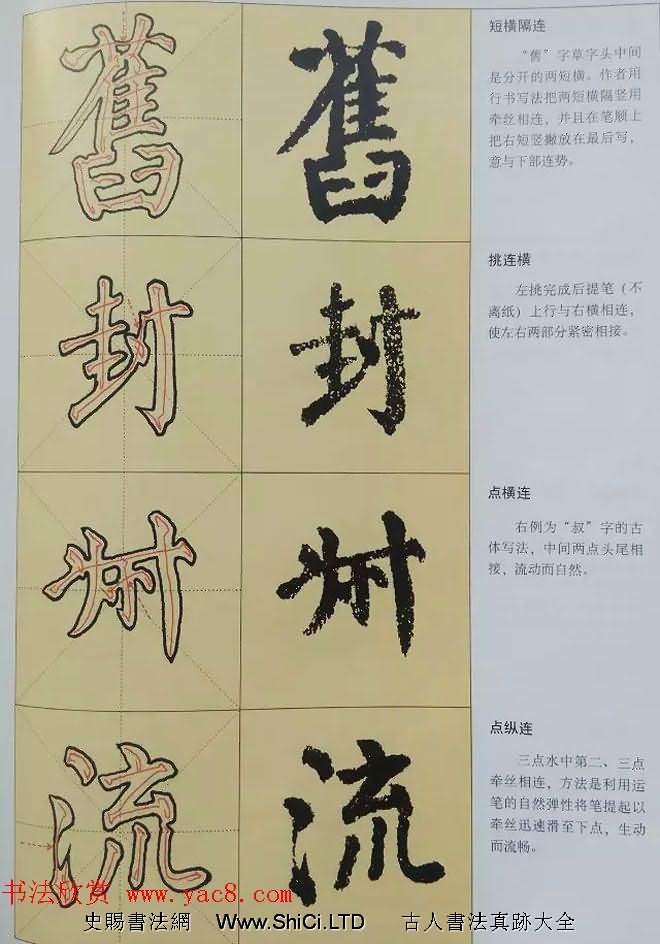 舊
舊
短横隔连
“舊”字草字头中间
是分开的两短横。作者用
行书写法把两短横隔竖用
牵丝相连，并且在笔顺上
把右短竖撇放在最后写，
意与下部连势。
封
封
挑连横
左挑完成后提笔（不
离纸）上行与右横相连，
使左右两部分紧密相接。
点横连
右例为“叔”字的古
体写法，中间两点头尾相
接，流动而自然。
流
流
点纵连
三点水中第二、三点
牵丝相连，方法是利用运
笔的自然弹性将笔提起以
牵丝迅速滑至下点，生动
而流畅。
书法欣赏 www.yac8.com
史賜書法網 Www.ShiCi.LTD 古人書法真跡大全